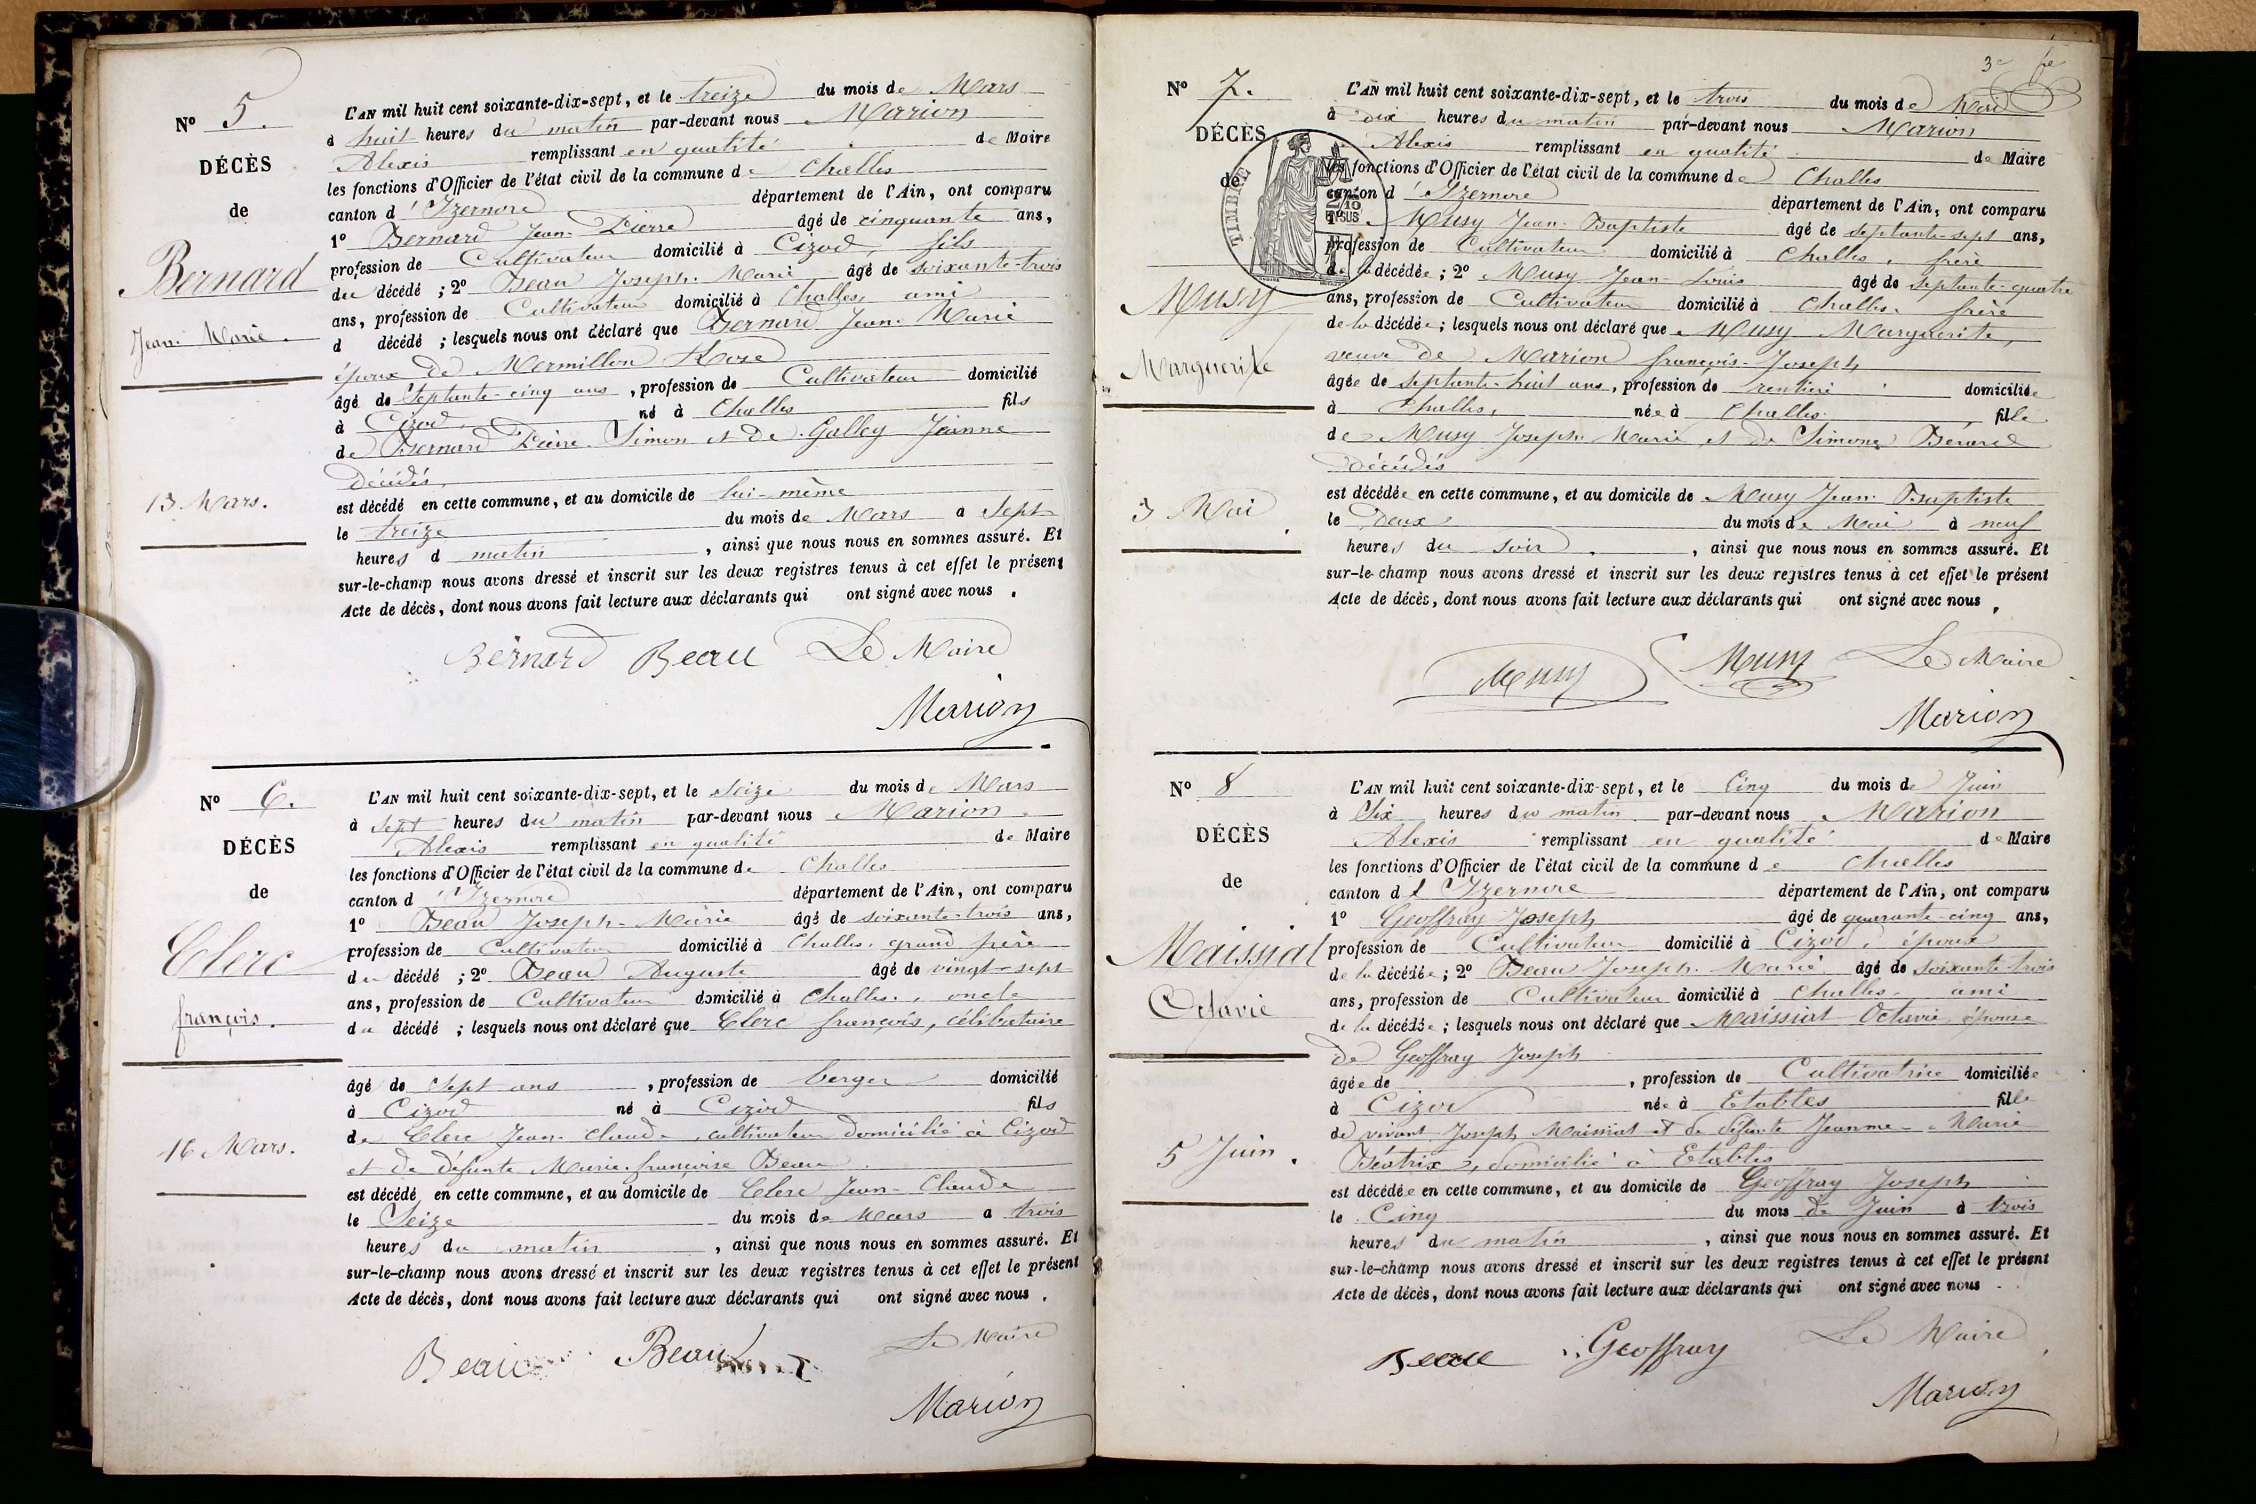 N° 5.
DÉCÈS
de
Bernard
Jean-Marie.
13 Mars.
L'AN mil huit cent soixante-dix-sept, et le treize du mois de Mars
à huit heures du matin par-devant nous Marion
Alexis remplissant en qualité de Maire
les fonctions d'Officier de l'état civil de la commune de Challes
canton d'Izernore département de l'Ain, ont comparu
1° Bernard Jean-Pierre âgé de cinquante ans,
profession de Cultivateur domicilié à Cizod, fils
du décédé ; 2° Beau Joseph-Marie âgé de soixante-trois
ans, profession de Cultivateur domicilié à Challes, ami
d décédé ; lesquels nous ont déclaré que Bernard Jean-Marie
époux de Mermillon Rose
âgé de septante-cinq ans, profession de Cultivateur domicilié
à Cizod, né à Challes fils
de Bernard Pierre Simon et de Galley Jeanne
décédés,
est décédé en cette commune, et au domicile de lui-même
le treize du mois de Mars a sept
heures d matin, ainsi que nous nous en sommes assuré. Et
sur-le-champ nous avons dressé et inscrit sur les deux registres tenus à cet effet le présent
Acte de décès, dont nous avons fait lecture aux déclarants qui ont signé avec nous.
Bernard Beau Le Maire
Marion
N° 6.
DÉCÈS
de
Clerc
françois.
16 Mars.
L'AN mil huit cent soixante-dix-sept, et le seize du mois de Mars
à sept heures du matin par-devant nous Marion
Alexis remplissant en qualité de Maire
les fonctions d'Officier de l'état civil de la commune de Challes
canton d'Izernore département de l'Ain, ont comparu
1° Beau Joseph-Marie âgé de soixante-trois ans,
profession de Cultivateur domicilié à Challes, grand père
du décédé ; 2° Beau Auguste âgé de vingt-sept
ans, profession de Cultivateur domicilié à Challes, oncle
du décédé ; lesquels nous ont déclaré que Clerc françois, célibataire
âgé de sept ans, profession de berger domicilié
à Cizod né à Cizod fils
de Clerc Jean-Claude, cultivateur domicilié à Cizod
et de défunte Marie-françoise Beau
est décédé en cette commune, et au domicile de Clerc Jean-Claude
le Seize du mois de Mars a trois
heures du matin, ainsi que nous nous en sommes assuré. Et
sur-le-champ nous avons dressé et inscrit sur les deux registres tenus à cet effet le présent
Acte de décès, dont nous avons fait lecture aux déclarants qui ont signé avec nous.
Beau Beau Le Maire
Marion
3e fe
N° 7.
DÉCÈS
de
TIMBRE
2/10 EN SUS
Musy
Marguerite
3 Mai
L'AN mil huit cent soixante-dix-sept, et le trois du mois de Mai
à dix heures du matin par-devant nous Marion
Alexis remplissant en qualité de Maire
les fonctions d'Officier de l'état civil de la commune de Challes
canton d'Izernore département de l'Ain, ont comparu
1° Musy Jean-Baptiste âgé de septante-sept ans,
profession de Cultivateur domicilié à Challes, frère
de la décédée ; 2° Musy Jean-Louis âgé de septante-quatre
ans, profession de Cultivateur domicilié à Challes, frère
de la décédée ; lesquels nous ont déclaré que Musy Marguerite,
veuve de Marion françois-Joseph
âgée de septante-huit ans, profession de rentière domiciliée
à Challes, née à Challes fille
de Musy Joseph Marie et de Simone Bérard
décédés
est décédée en cette commune, et au domicile de Musy Jean-Baptiste
le Deux du mois de Mai à neuf
heures du soir, ainsi que nous nous en sommes assuré. Et
sur-le-champ nous avons dressé et inscrit sur les deux registres tenus à cet effet le présent
Acte de décès, dont nous avons fait lecture aux déclarants qui ont signé avec nous.
Musy Musy Le Maire
Marion
N° 8
DÉCÈS
de
Maissiat
Octavie
5 Juin.
L'AN mil huit cent soixante-dix-sept, et le Cinq du mois de Juin
à Six heures du matin par-devant nous Marion
Alexis remplissant en qualité de Maire
les fonctions d'Officier de l'état civil de la commune de Challes
canton d'Izernore département de l'Ain, ont comparu
1° Geoffray Joseph âgé de quarante-cinq ans,
profession de Cultivateur domicilié à Cizod, époux
de la décédée ; 2° Beau Joseph-Marie âgé de soixante-trois
ans, profession de Cultivateur domicilié à Challes, ami
de la décédée ; lesquels nous ont déclaré que Maissiat Octavie épouse
de Geoffray Joseph
âgée de , profession de Cultivatrice domiciliée
à Cizod née à Etables fille
de vivant Joseph Maissiat et de défunte Jeanne-Marie
Béatrix, domicilié à Etables
est décédée en cette commune, et au domicile de Geoffray Joseph
le Cinq du mois de Juin à trois
heures du matin, ainsi que nous nous en sommes assuré. Et
sur-le-champ nous avons dressé et inscrit sur les deux registres tenus à cet effet le présent
Acte de décès, dont nous avons fait lecture aux déclarants qui ont signé avec nous.
Beau Geoffray Le Maire
Marion